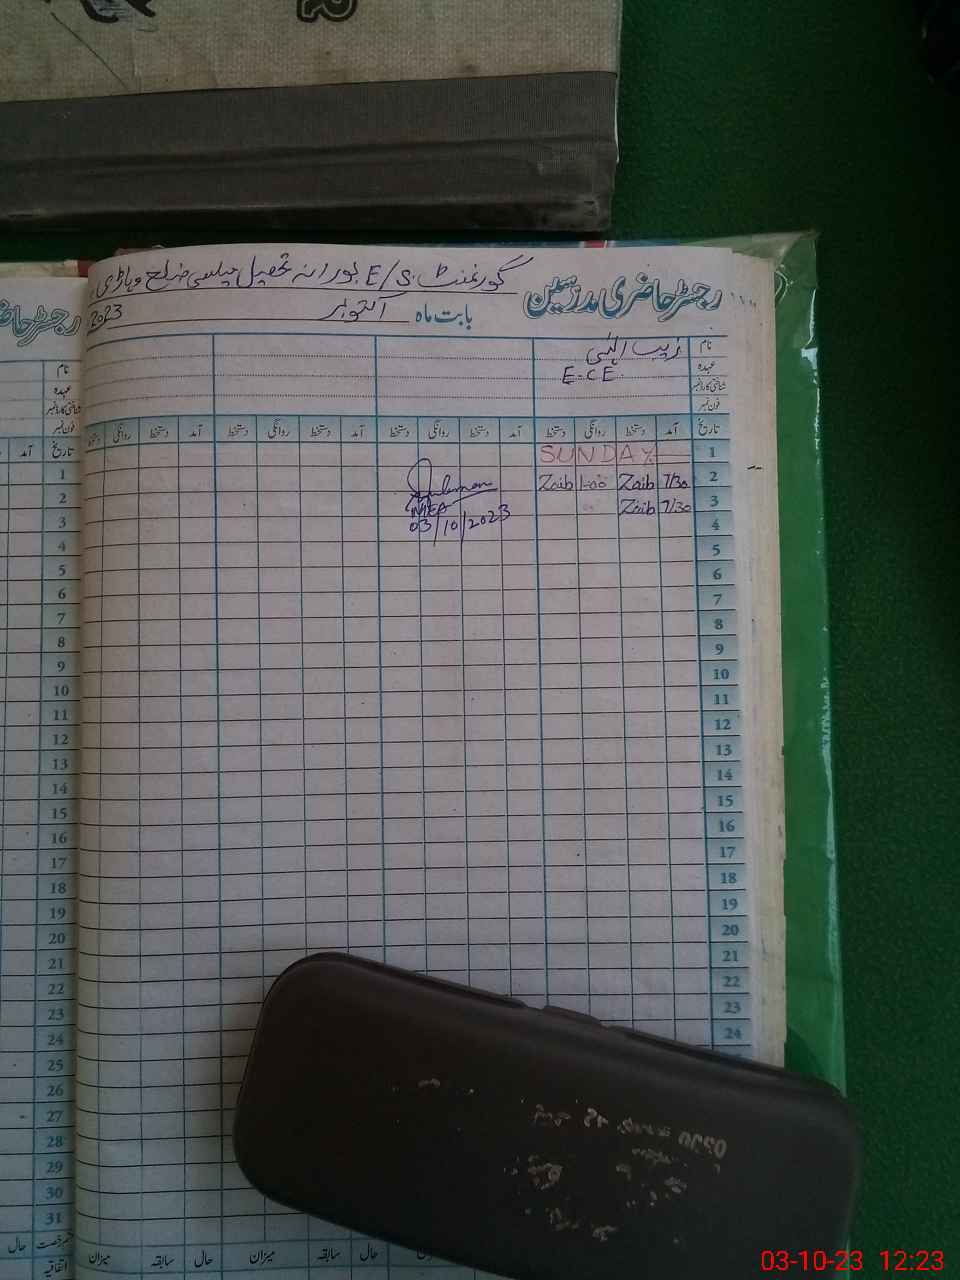 گورنمنٹ E/S بورانہ تحصیل میلسی ضلع وہاڑی
رجسٹر حاضری مدرسین
بابت ماہ اکتوبر 2023
نام زیب الہٰی
عہدہ E.C.E
شناختی کارڈ نمبر
فون نمبر
تاریخ آمد دستخط روانگی دستخط آمد دستخط روانگی دستخط آمد دستخط روانگی دستخط آمد دستخط روانگی دستخط
1 SUNDAY
2 7/30 Zaib 1-00 Zaib
3 7/30 Zaib
MEA
03/10/2023
4
5
6
7
8
9
10
11
12
13
14
15
16
17
18
19
20
21
22
23
24
حال سابقہ میزان حال سابقہ میزان
رجسٹر حا
نام
عہدہ
شناختی کارڈ نمبر
فون نمبر
تاریخ آمد
1
2
3
4
5
6
7
8
9
10
11
12
13
14
15
16
17
18
19
20
21
22
23
24
25
26
27
28
29
30
31
قسم رخصت حال
اتفاقیہ
03-10-23 12:23